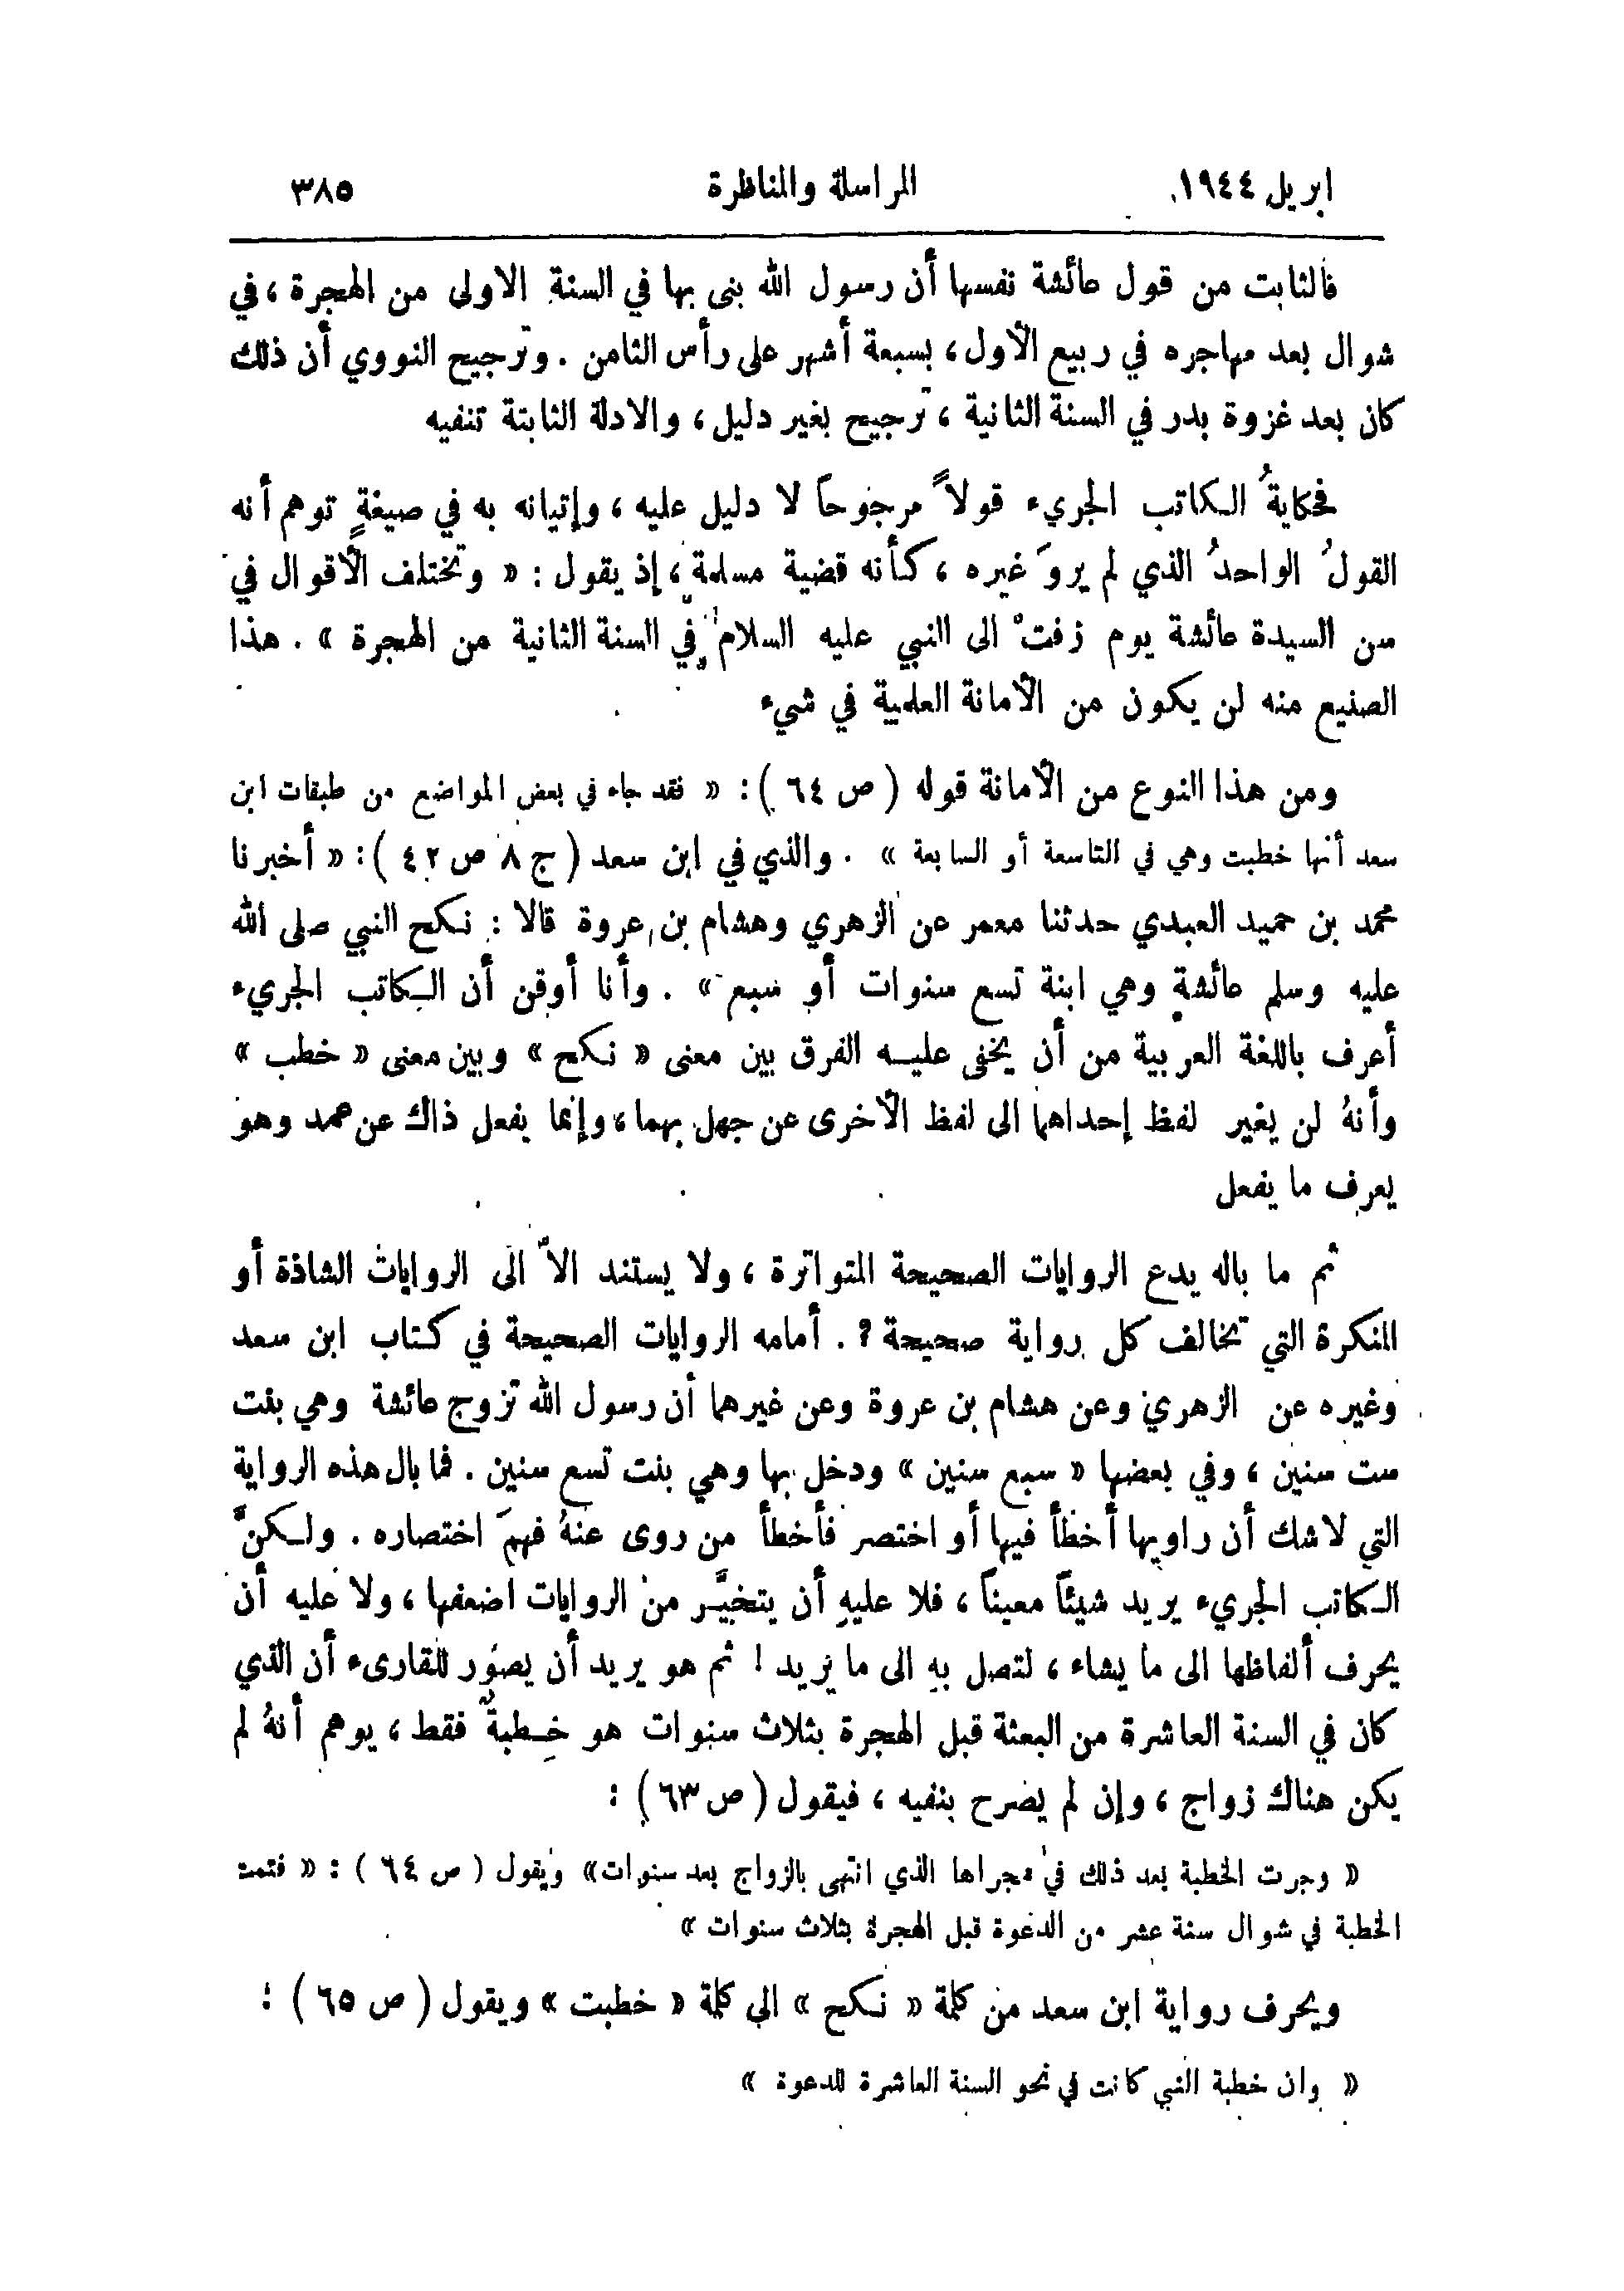 ابريل ١٩٤٤ المراسلة والمناظرة ٣٨٥
فالثابت من قول عائشة نفسها أن رسول الله بنى بها في السنة الاولى من الهجرة ، في
شوال بعد مهاجره في ربيع الأول ، بسبعة أشهر على رأس الثامن . وترجيح النووي أن ذلك
كان بعد غزوة بدر في السنة الثانية ، ترجيح بغير دليل ، والادلة الثابتة تنفيه
فحكايةُ الكاتب الجريء قولاً مرجوحاً لا دليل عليه ، وإتيانه به في صيغةٍ توهم أنه
القولُ الواحدُ الذي لم يروَ غيره ، كأنه قضية مسلمة ، إذ يقول : « وتختلف الأقوال في
سن السيدة عائشة يوم زفتْ الى النبي عليه السلام في السنة الثانية من الهجرة » . هذا
الصنيع منه لن يكون من الأمانة العلمية في شيء
ومن هذا النوع من الأمانة قوله ( ص ٦٤ ) : « فقد جاء في بعض المواضع من طبقات ابن
سعد أنها خطبت وهي في التاسعة أو السابعة » . والذي في ابن سعد ( ج ٨ ص ٤٢ ) : « أخبرنا
محمد بن حميد العبدي حدثنا معمر عن الزهري وهشام بن عروة قالا : نكح النبي صلى الله
عليه وسلم عائشة وهي ابنة تسع سنوات أو سبع » . وأنا أوقن أن الكاتب الجريء
أعرف باللغة العربية من أن يخفى عليه الفرق بين معنى « نكح » وبين معنى « خطب »
وأنهُ لن يغير لفظ إحداهما الى لفظ الأخرى عن جهل بهما ، وإنما يفعل ذاك عن عمد وهو
يعرف ما يفعل
ثم ما باله يدع الروايات الصحيحة المتواترة ، ولا يستند الاّ الى الروايات الشاذة أو
المنكرة التي تخالف كل رواية صحيحة ؟ . أمامه الروايات الصحيحة في كتاب ابن سعد
وغيره عن الزهري وعن هشام بن عروة وعن غيرهما أن رسول الله تزوج عائشة وهي بنت
ست سنين ، وفي بعضها « سبع سنين » ودخل بها وهي بنت تسع سنين . فما بال هذه الرواية
التي لا شك أن راويها أخطأ فيها أو اختصر فأخطأ من روى عنهُ فهمَ اختصاره . ولكنَّ
الكاتب الجريء يريد شيئاً معيناً ، فلا عليهِ أن يتخيَّر من الروايات اضعفها ، ولا عليه أن
يحرف ألفاظها الى ما يشاء ، لتصل بهِ الى ما يريد ! ثم هو يريد أن يصور للقارىء أن الذي
كان في السنة العاشرة من البعثة قبل الهجرة بثلاث سنوات هو خِطبةٌ فقط ، يوهم أنهُ لم
يكن هناك زواج ، وإن لم يصرح بنفيه ، فيقول ( ص ٦٣ ) :
« وجرت الخطبة بعد ذلك في مجراها الذي انتهى بالزواج بعد سنوات » ويقول ( ص ٦٤ ) : « فتمت
الخطبة في شوال سنة عشر من الدعوة قبل الهجرة بثلاث سنوات »
ويحرف رواية ابن سعد من كلمة « نكح » الى كلمة « خطبت » ويقول ( ص ٦٥ ) :
« وان خطبة النبي كانت في نحو السنة العاشرة للدعوة »